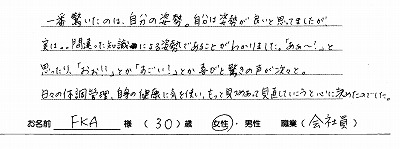 一番驚いたのは、自分の姿勢。自分は姿勢が良いと思ってましたが
実は‥間違った知識による姿勢であることがわかりました。「ああ〜!」と
思ったり、「おお!!」とか「すごい!」とか喜びと驚きの声が次々と。
日々の体調管理、自身の健康に気を使い、もっと見つめあって見直していこうと心に決めたのでした。
お名前 FKA 様 (30)歳 女性・男性 職業(会社員)